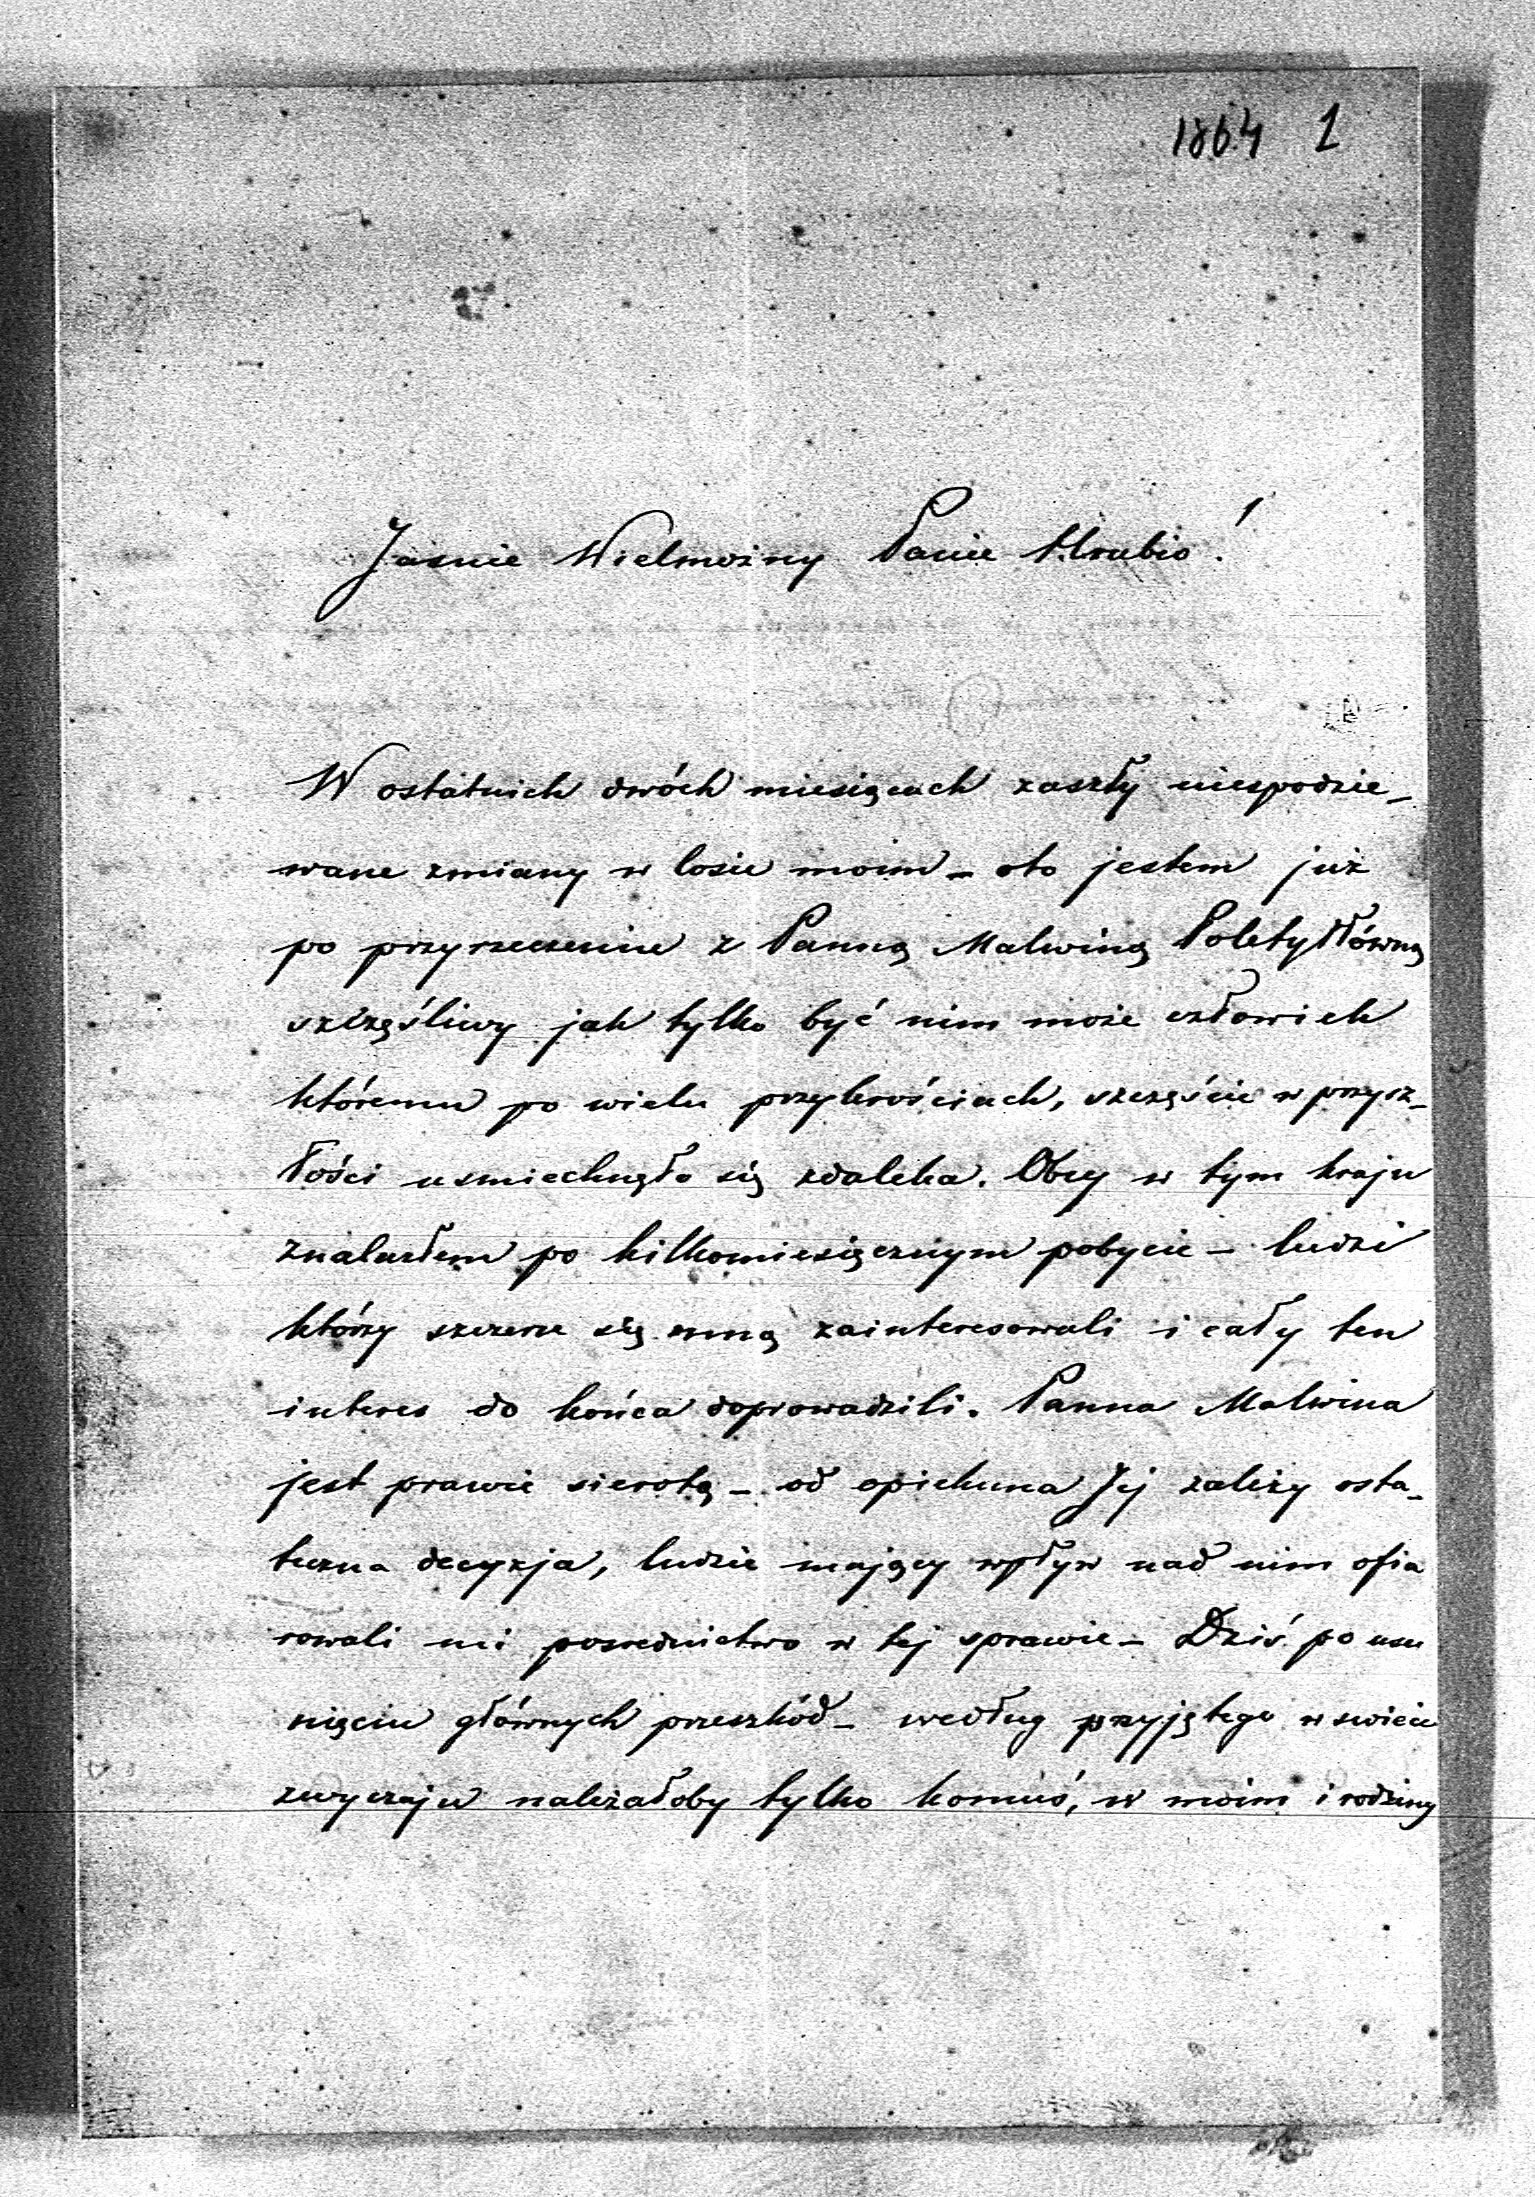 1864 1
Jasnie Wielmożny Panie Hrabio!
W ostatnich dwóch miesiącach zaszły niespodzie_
wane zmiany w losie moim _ oto jestem już
po przyrzeczeniu z Panną Malwiną Poletyłłówną
szczęśliwy jak tylko być nim może człowiek
któremu po wielu przykrościach, szczęście w przysz_
łości usmiechnęło się zdaleka. Obcy w tym kraju
znalazłem po kilkomiesięcznym pobycie _ ludzi
którzy szczerze się mną zainteresowali i cały ten
interes do końca doprowadzili. Panna Malwina
jest prawie sierotą _ od opiekuna Jej zależy osta_
teczna decyzja, ludzie mający wpływ nad nim ofia
rowali mi posrednictwo w tej sprawie _ Dziś po usu
nięciu głównych przeszkód _ według przyjętego w swiecie
zwyczaju należałoby tylko komuś, w moim i rodziny